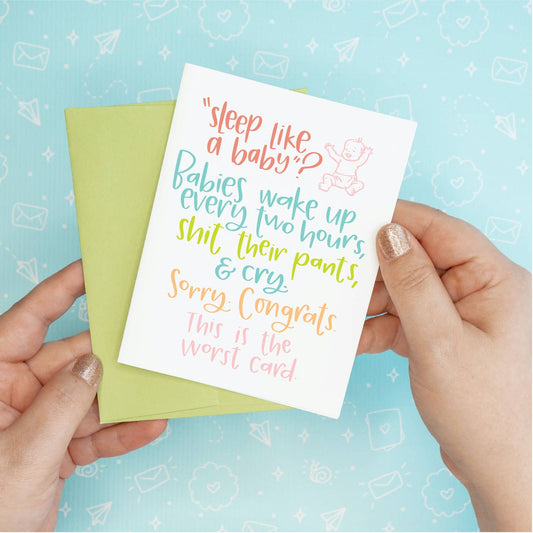 "sleep like
a baby"?
Babies wake up
every two hours,
shit their pants,
& cry.
Sorry. Congrats.
This is the
worst card.